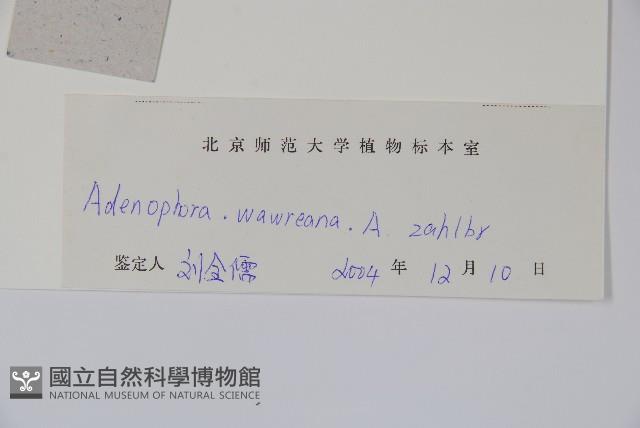 北京师范大学植物标本室
Adenophora . wawreana . A. zahlbr
鉴定人 刘全儒 2004 年 12 月 10 日
國立自然科學博物館
NATIONAL MUSEUM OF NATURAL SCIENCE